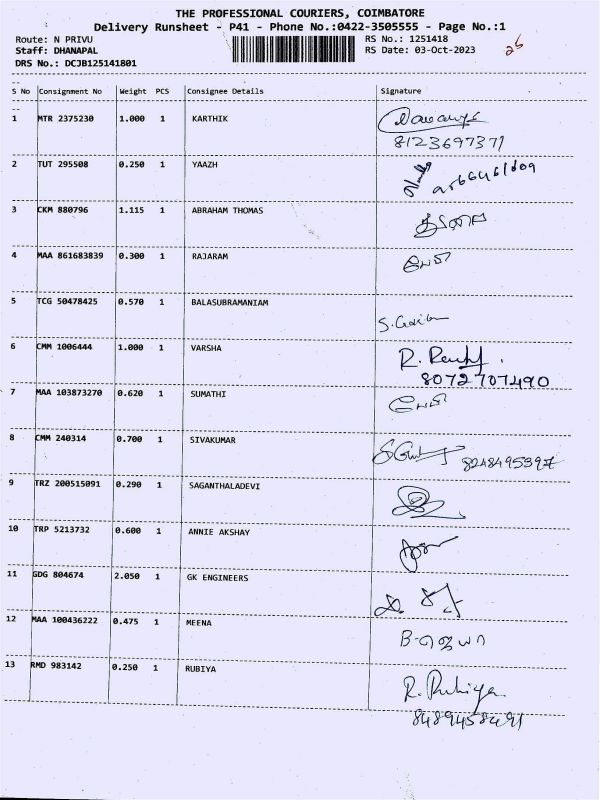 THE PROFESSIONAL COURIERS, COIMBATORE
Delivery Runsheet - P41 - Phone No.:0422-3505555 - Page No.:1
Route: N PRIVU RS No.: 1251418
Staff: DHANAPAL RS Date: 03-Oct-2023 26
DRS No.: DCJB125141801
S No Consignment No Weight PCS Consignee Details Signature
1 MTR 2375230 1.000 1 KARTHIK
8123697371
2 TUT 295508 0.250 1 YAAZH
3 CKM 880796 1.115 1 ABRAHAM THOMAS
4 MAA 861683839 0.300 1 RAJARAM
5 TCG 50478425 0.570 1 BALASUBRAMANIAM
6 CMM 1006444 1.000 1 VARSHA
8072707490
7 MAA 103873270 0.620 1 SUMATHI
8 CMM 240314 0.700 1 SIVAKUMAR
8248495397
9 TRZ 200515091 0.290 1 SAGANTHALADEVI
10 TRP 5213732 0.600 1 ANNIE AKSHAY
11 GDG 804674 2.050 1 GK ENGINEERS
12 MAA 100436222 0.475 1 MEENA
13 RMD 983142 0.250 1 RUBIYA
R. Rubiya
8489458491